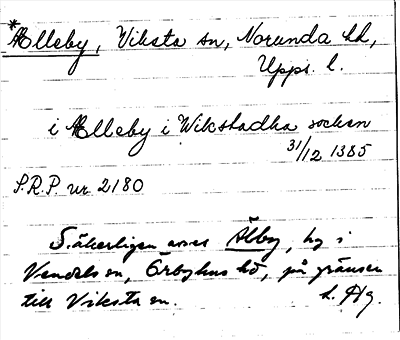 *Ælleby, Viksta sn, Norunda hd,
Upps. l.
i Ælleby i Wikstadha socken
31/12 1385
S.R.P. nr 2180
Säkerligen avses Älby, by i
Vendels sn, Örbyhus hd, på gränsen
till Viksta sn.
L. Hg.